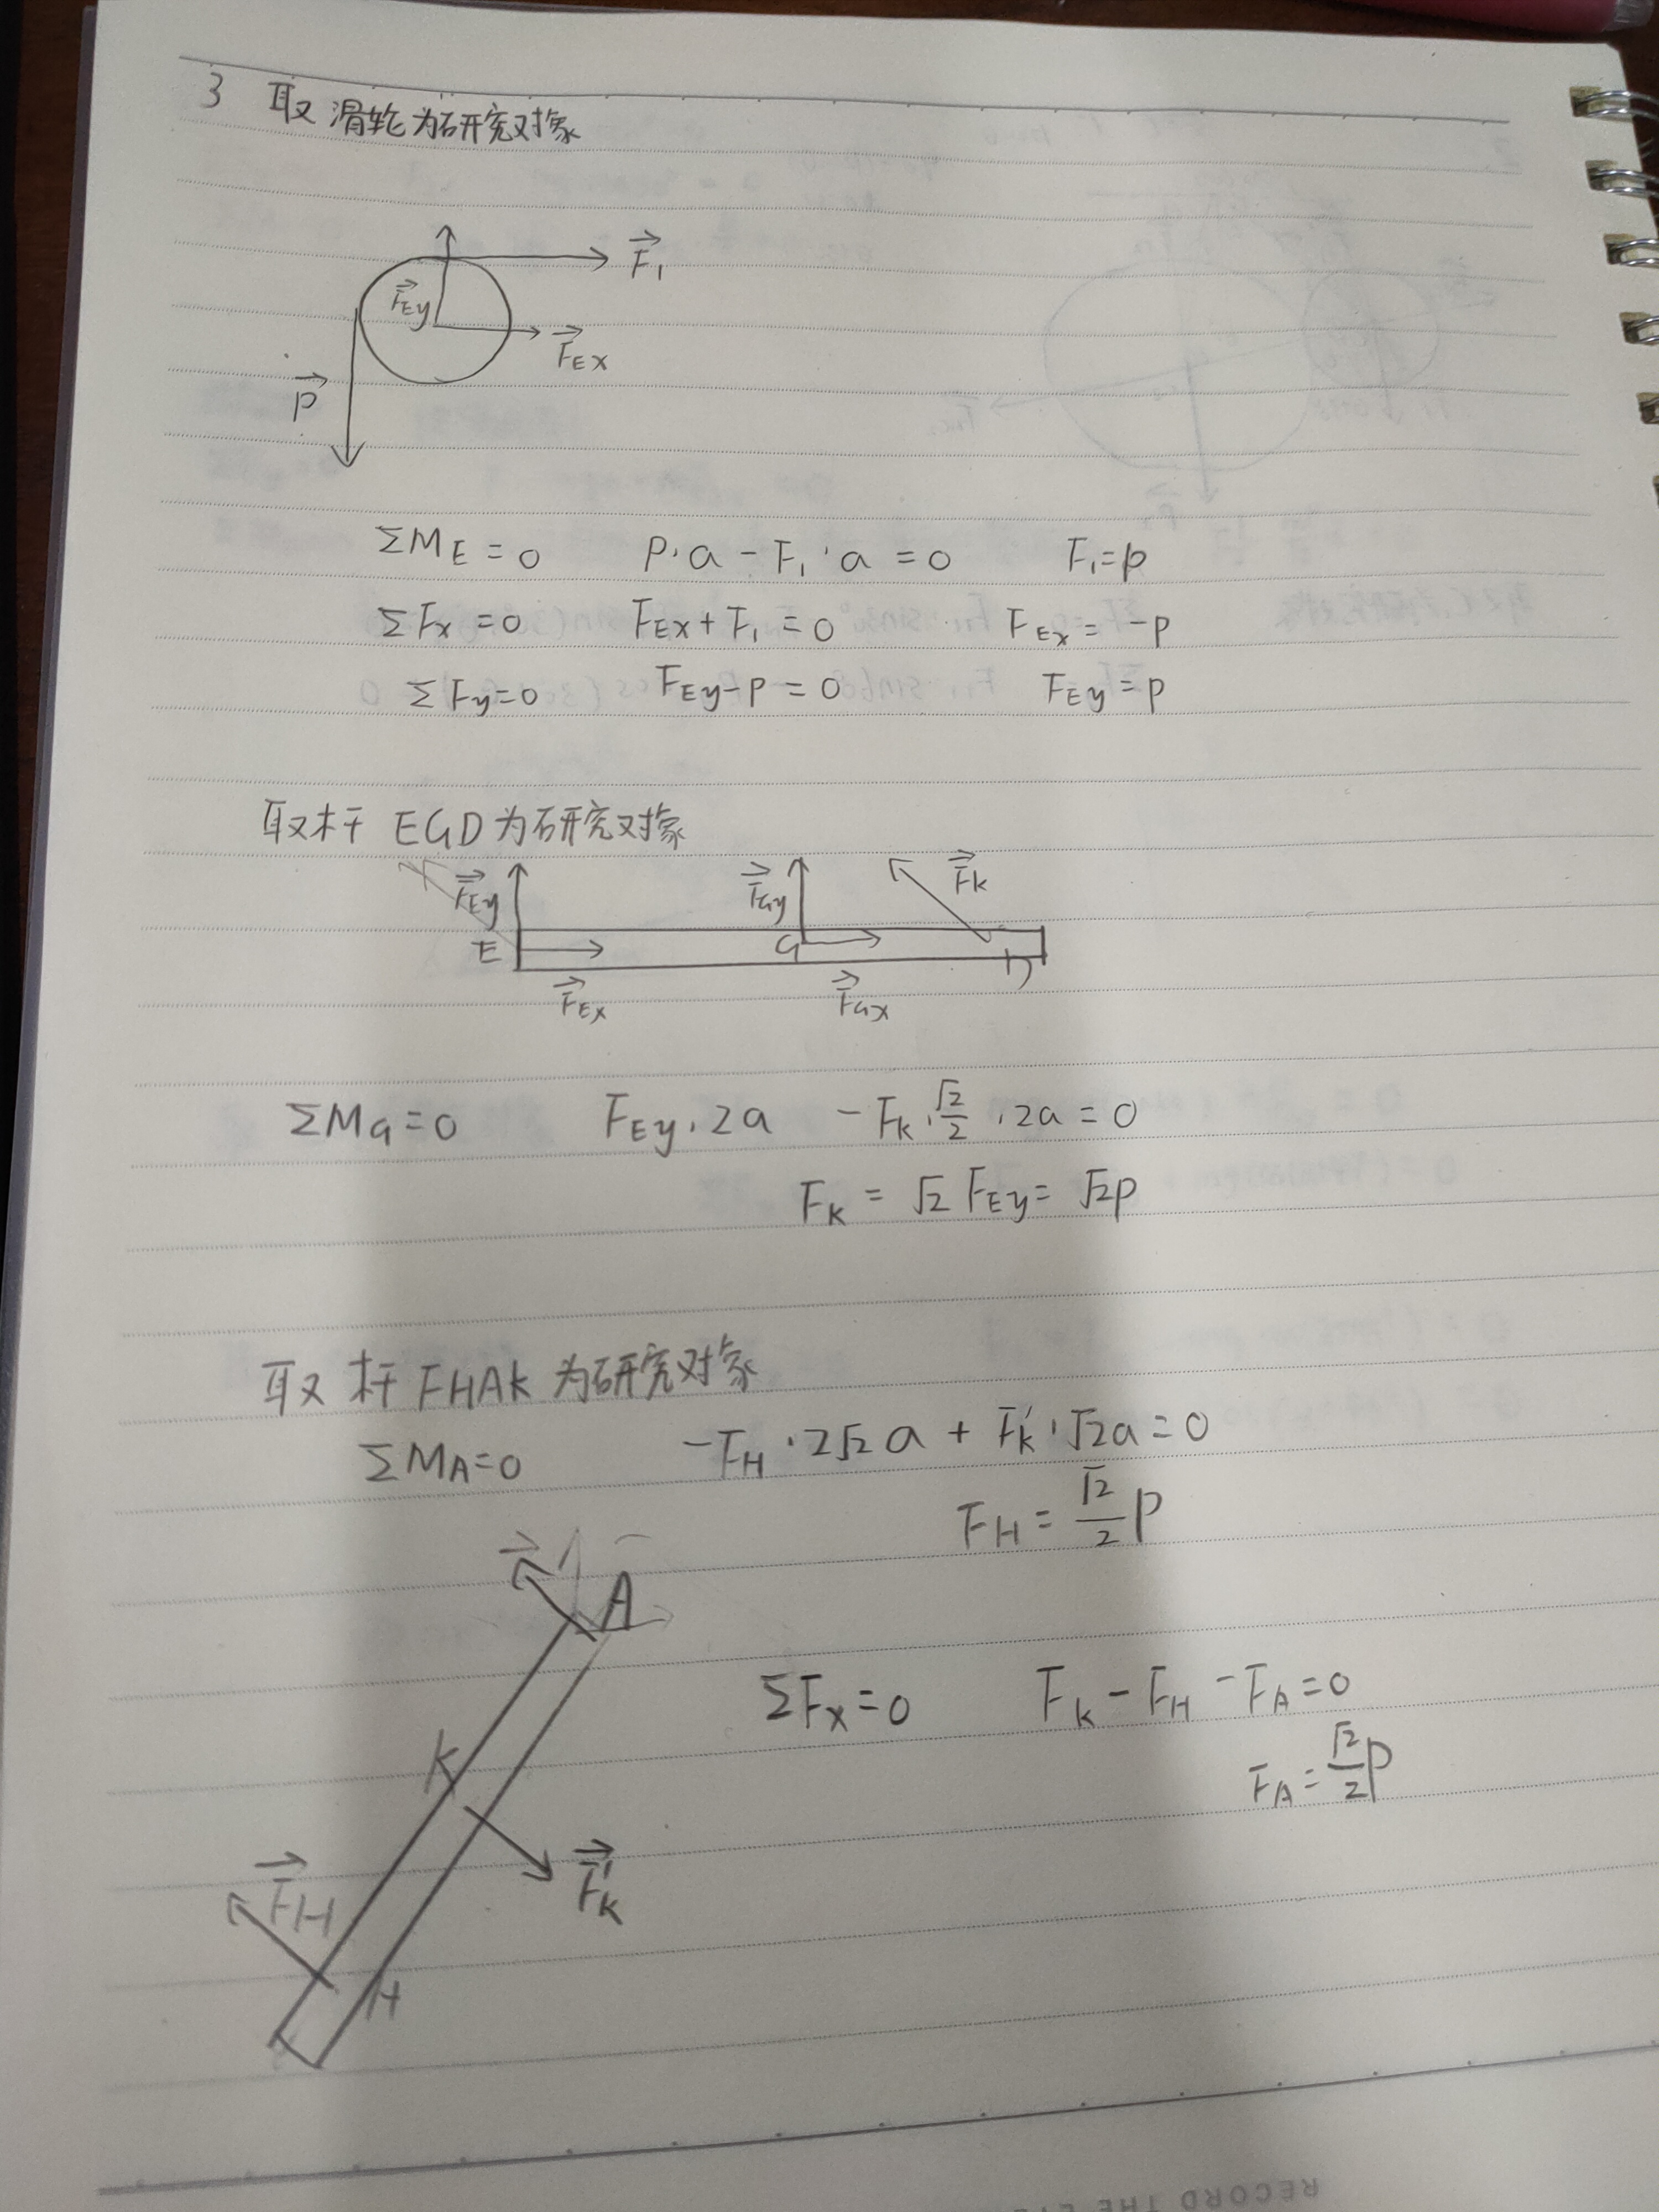 3 取滑轮为研究对象
F₁
F_Ey
F_Ex
P
ΣM_E=0 P·a-F₁·a=0 F₁=P
ΣFx=0 F_Ex+F₁=0 F_Ex=-P
ΣFy=0 F_Ey-P=0 F_Ey=P
取杆EGD为研究对象
F_Ey F_Gy F_k
E G D
F_Ex F_Gx
ΣM_G=0 F_Ey·2a -F_k·√2/2·2a=0
F_k=√2F_Ey=√2P
取杆FHAK为研究对象
ΣM_A=0 -F_H·2√2a+F_k'·√2a=0
F_H=√2/2 P
A
ΣFx=0 F_k-F_H-F_A=0
F_A=√2/2 P
K
F_k'
F_H
H
RECORD THE